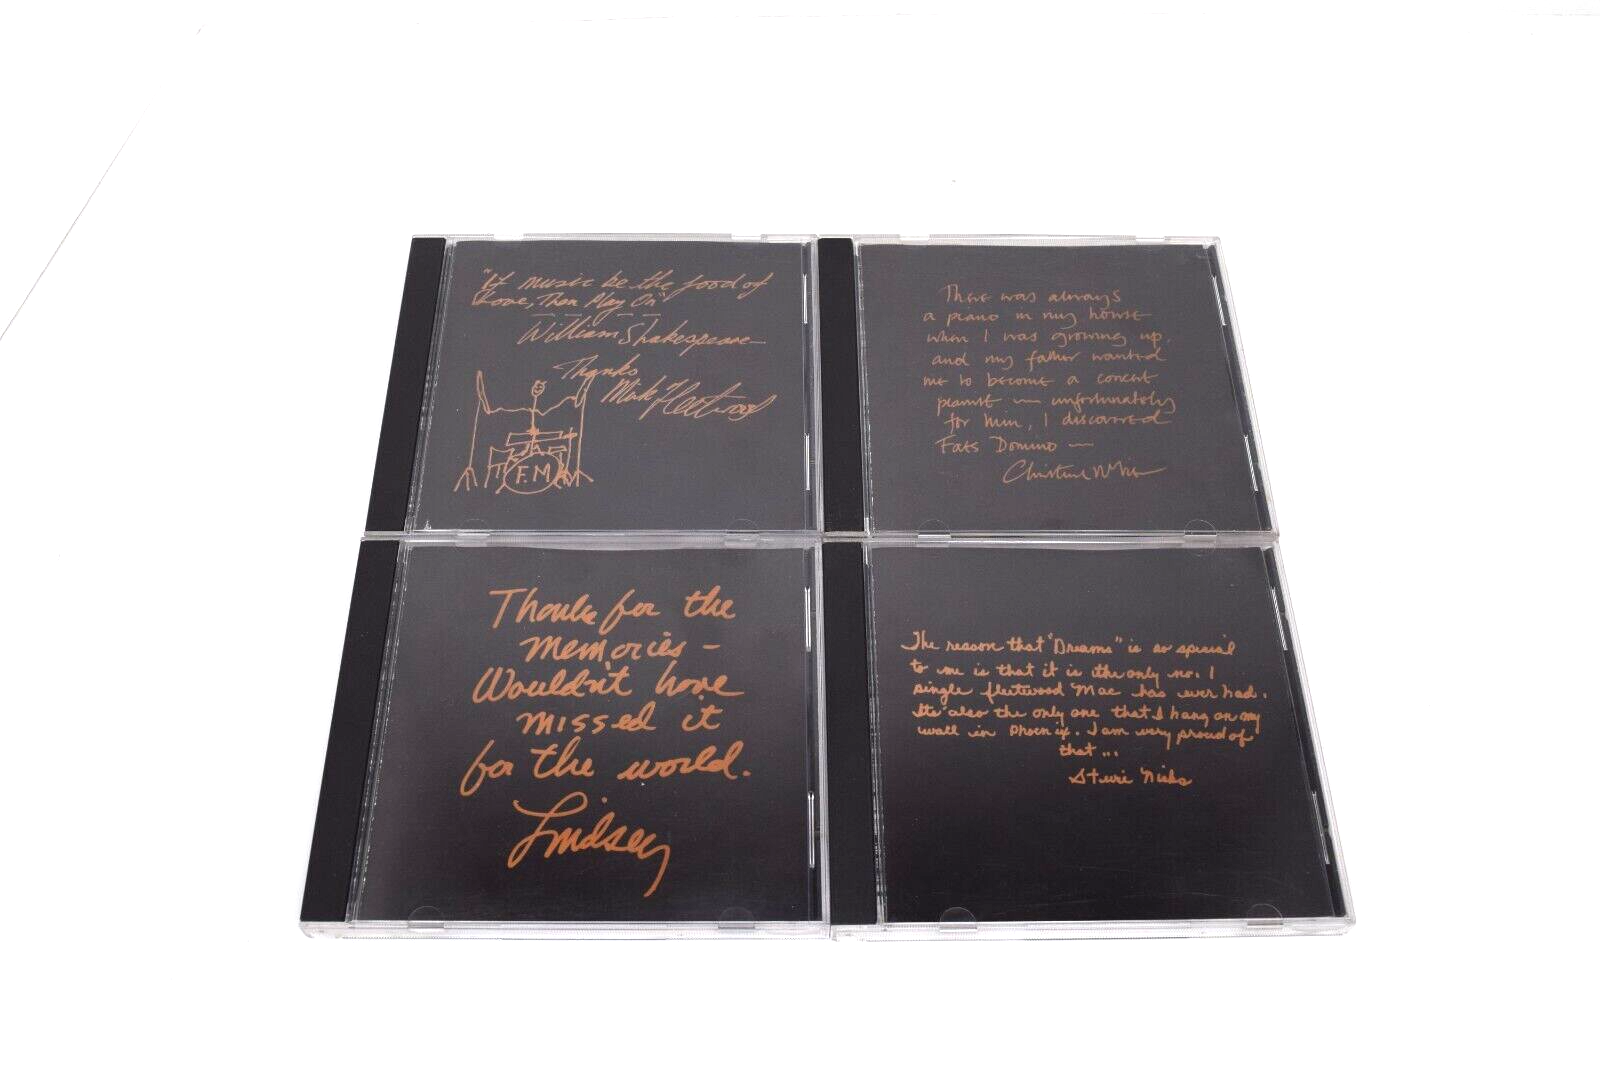 "If music be the food of
Love, Then Play On"
William Shakespeare
Thanks
Mick Fleetwood
F.M
There was always
a piano in my house
when I was growing up,
and my father wanted
me to become a concert
pianist — unfortunately
for him, I discovered
Fats Domino —
Christine McVie
Thanks for the
memories –
Wouldn't have
missed it
for the world.
Lindsey
The reason that "Dreams" is so special
to me is that it is the only no. 1
single fleetwood Mac has ever had.
Its also the only one that I hang on my
wall in Phoenix. I am very proud of
that...
Stevie Nicks